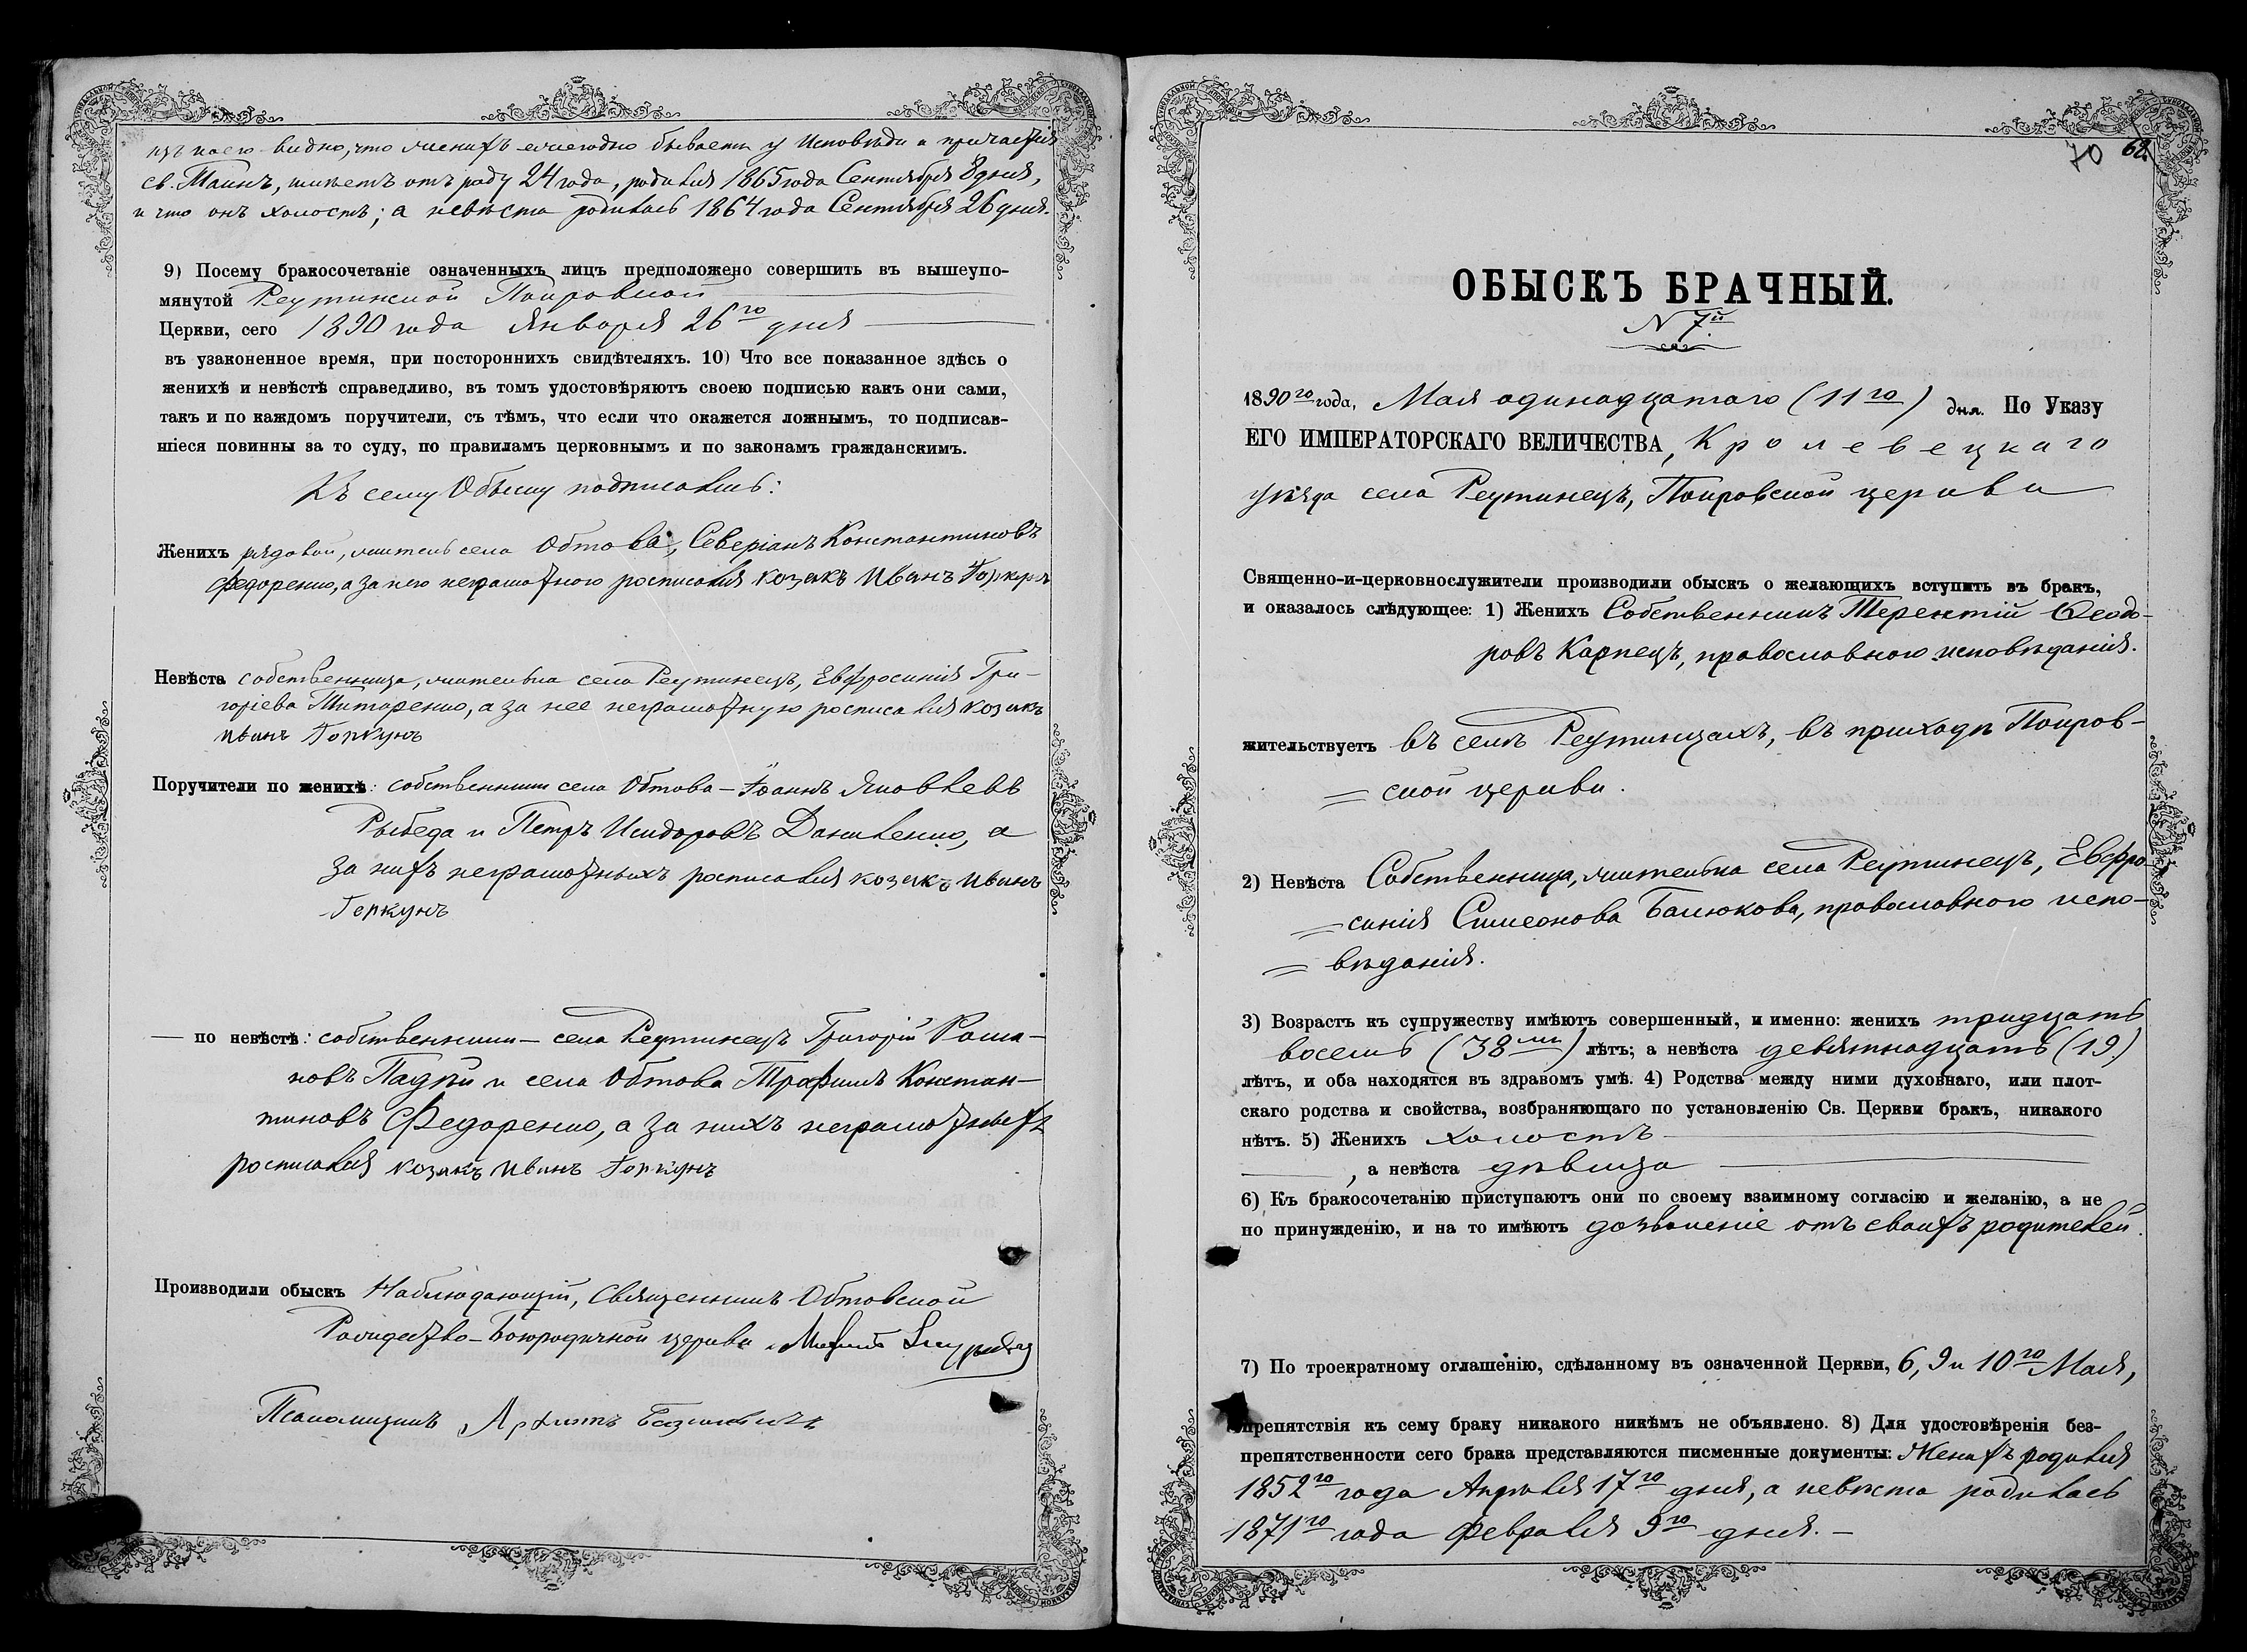 изъ коего видно, что женихъ ежегодно бываетъ у Исповѣди и причастія
Св. Таинъ, имѣетъ отъ роду 24 года, родился 1865 года Сентября 8 дня,
и что онъ холостъ; а невѣста родилась 1864 года Сентября 26 дня.
9) Посему бракосочетаніе означенныхъ лицъ предположено совершить въ вышеупо-
мянутой Реутинской Покровской
Церкви, сего 1890 года Января 26го дня
въ узаконенное время, при постороннихъ свидѣтеляхъ. 10) Что все показанное здѣсь о
женихѣ и невѣстѣ справедливо, въ томъ удостовѣряютъ своею подписью какъ они сами,
такъ и по каждомъ поручители, съ тѣмъ, что если что окажется ложнымъ, то подписав-
шіеся повинны за то суду, по правиламъ церковнымъ и по законамъ гражданскимъ.
Къ сему Обыску подписались:
Женихъ рядовой, житель села Обтова, Северіанъ Константиновъ
Федоренко, а за него неграмотного росписался козакъ Иванъ
Невѣста собственница, жителька села Реутинецъ, Евфросинія Гри-
горіева Титаренко, а за нее неграмотную росписался козакъ
Иванъ
Поручители по женихѣ: собственники села Обтова - Іоаннъ Яковлевъ
Рыбеда и Петръ Исидоровъ Даниленко, а
за нихъ неграмотныхъ росписался козакъ Иванъ
— по невѣстѣ: собственники - села Реутинецъ Григорій Рома-
новъ Падѣй и села Обтова Трафимъ Констан-
тиновъ Федоренко, а за нихъ неграмотныхъ
росписался козакъ Иванъ
Производили обыскъ Наблюдающій, Священникъ Обтовской
Рождество-Богородичной церкви
Псаломщикъ
70 62
ОБЫСКЪ БРАЧНЫЙ.
N 7й
1890го года, Мая одинадцатаго (11го) дня. По Указу
ЕГО ИМПЕРАТОРСКАГО ВЕЛИЧЕСТВА, Кролевецкаго
уѣзда села Реутинецъ, Покровской церкви
Священно-и-церковнослужители производили обыскъ о желающихъ вступить въ бракъ,
и оказалось слѣдующее: 1) Женихъ Собственникъ Терентій Ѳеодо-
ровъ Карпецъ, православного исповѣданія.
жительствуетъ въ селѣ Реутинцахъ, въ приходѣ Покров-
= ской церкви.
2) Невѣста Собственница, жителька села Реутинецъ, Евфро-
= синія Симеонова Балюкова, православного испо-
= вѣданія.
3) Возрастъ къ супружеству имѣютъ совершенный, и именно: женихъ тридцать
восемь (38ми) лѣтъ; а невѣста девятнадцать (19)
лѣтъ, и оба находятся въ здравомъ умѣ. 4) Родства между ними духовнаго, или плот-
скаго родства и свойства, возбраняющаго по установленію Св. Церкви бракъ, никакого
нѣтъ. 5) Женихъ холостъ
, а невѣста дѣвица
6) Къ бракосочетанію приступаютъ они по своему взаимному согласію и желанію, а не
по принужденію, и на то имѣютъ дозволеніе отъ своихъ родителей.
7) По троекратному оглашенію, сдѣланному въ означенной Церкви, 6, 9 и 10го Мая,
препятствія къ сему браку никакого никѣмъ не объявлено. 8) Для удостовѣренія без-
препятственности сего брака представляются писменные документы: Женихъ родился
1852го года Апрѣля 17го дня, а невѣста родилась
1871го года Февраля 9го дня. —